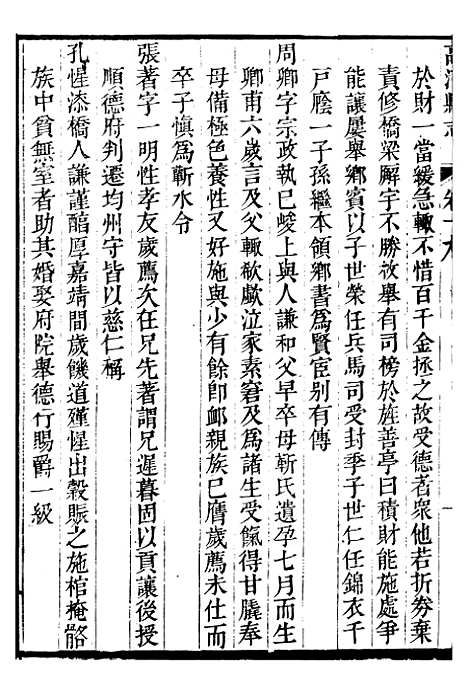 高淳縣志 卷十九
於財一當緩急輙不惜百千金拯之故受德者衆他若折劵棄
責修橋梁廨宇不勝敘舉有司榜於旌善亭曰積財能施處爭
能讓屢舉鄉賓以子世榮任兵馬司受封季子世仁任錦衣千
戸廕一子孫繼本領鄉書爲賢宦别有傳
周卿字宗政執巳峻上與人謙和父早卒母靳氏遺孕七月而生
卿甫六歲言及父輙欷歔泣家素窘及爲諸生受餼得甘毳奉
母備極色養性又好施與少有餘卽䘏親族巳膺歲薦未仕而
卒子愼爲蘄水令
張著字一明性孝友歲薦次在兄先著謂兄遲暮固以貢讓後授
順德府判遷均州守皆以慈仁稱
孔惺漆橋人謙謹醕厚嘉靖間歲饑道殣惺出穀賑之施棺掩骼
族中貧無室者助其婚娶府院舉德行賜爵一級